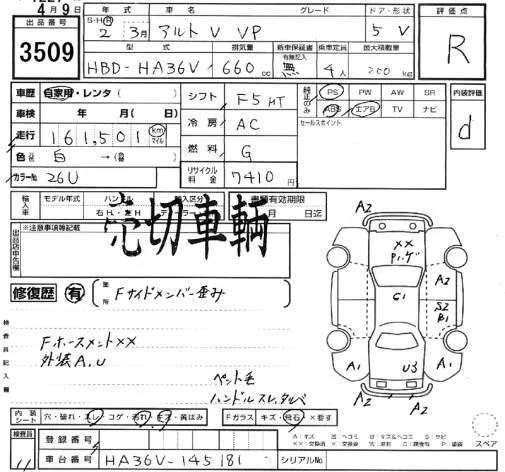 4月9日
出品番号
3509
S・H・R 年式 車名 グレード ドア・形状
2年3月 アルトV VP 5 V
型式 排気量 新車保証書 乗車定員 最大積載量
有無記入
HBD-HA36V 660cc 無 4人 200kg
評価点
R
車歴 自家用・レンタ( )
シフト F5MT
純正のみ PS PW AW SR
ABS エアB TV ナビ
内装評価
d
車検 年 月( 日)
冷房 AC
セールスポイント
走行 161,501 km マイル
燃料 G
色 白 →( 替)
カラーNo. 26U
リサイクル料金 7410円
輸入車 モデル年式 ハンドル 輸入区分 書類有効期限
右H・左H 月 日迄
売切車輌
出品店申告欄 ※注意事項等記載
修復歴 有 箇所 Fサイドメンバー歪み
検査員記入欄
Fホースメント××
外装A.U
ペット毛
ハンドルスレ、タバベ
A2
A2
××
P1.ゲ
A2
G1
S2
B1
A1
U3
A1
A2
A2
内装シート 穴・破れ・スレ・コゲ・汚れ・キズ・黄ばみ Fガラス キズ・飛石・×要す
スペア
検査員
11
登録番号
車台番号 HA36V-145181 シリアルNo.